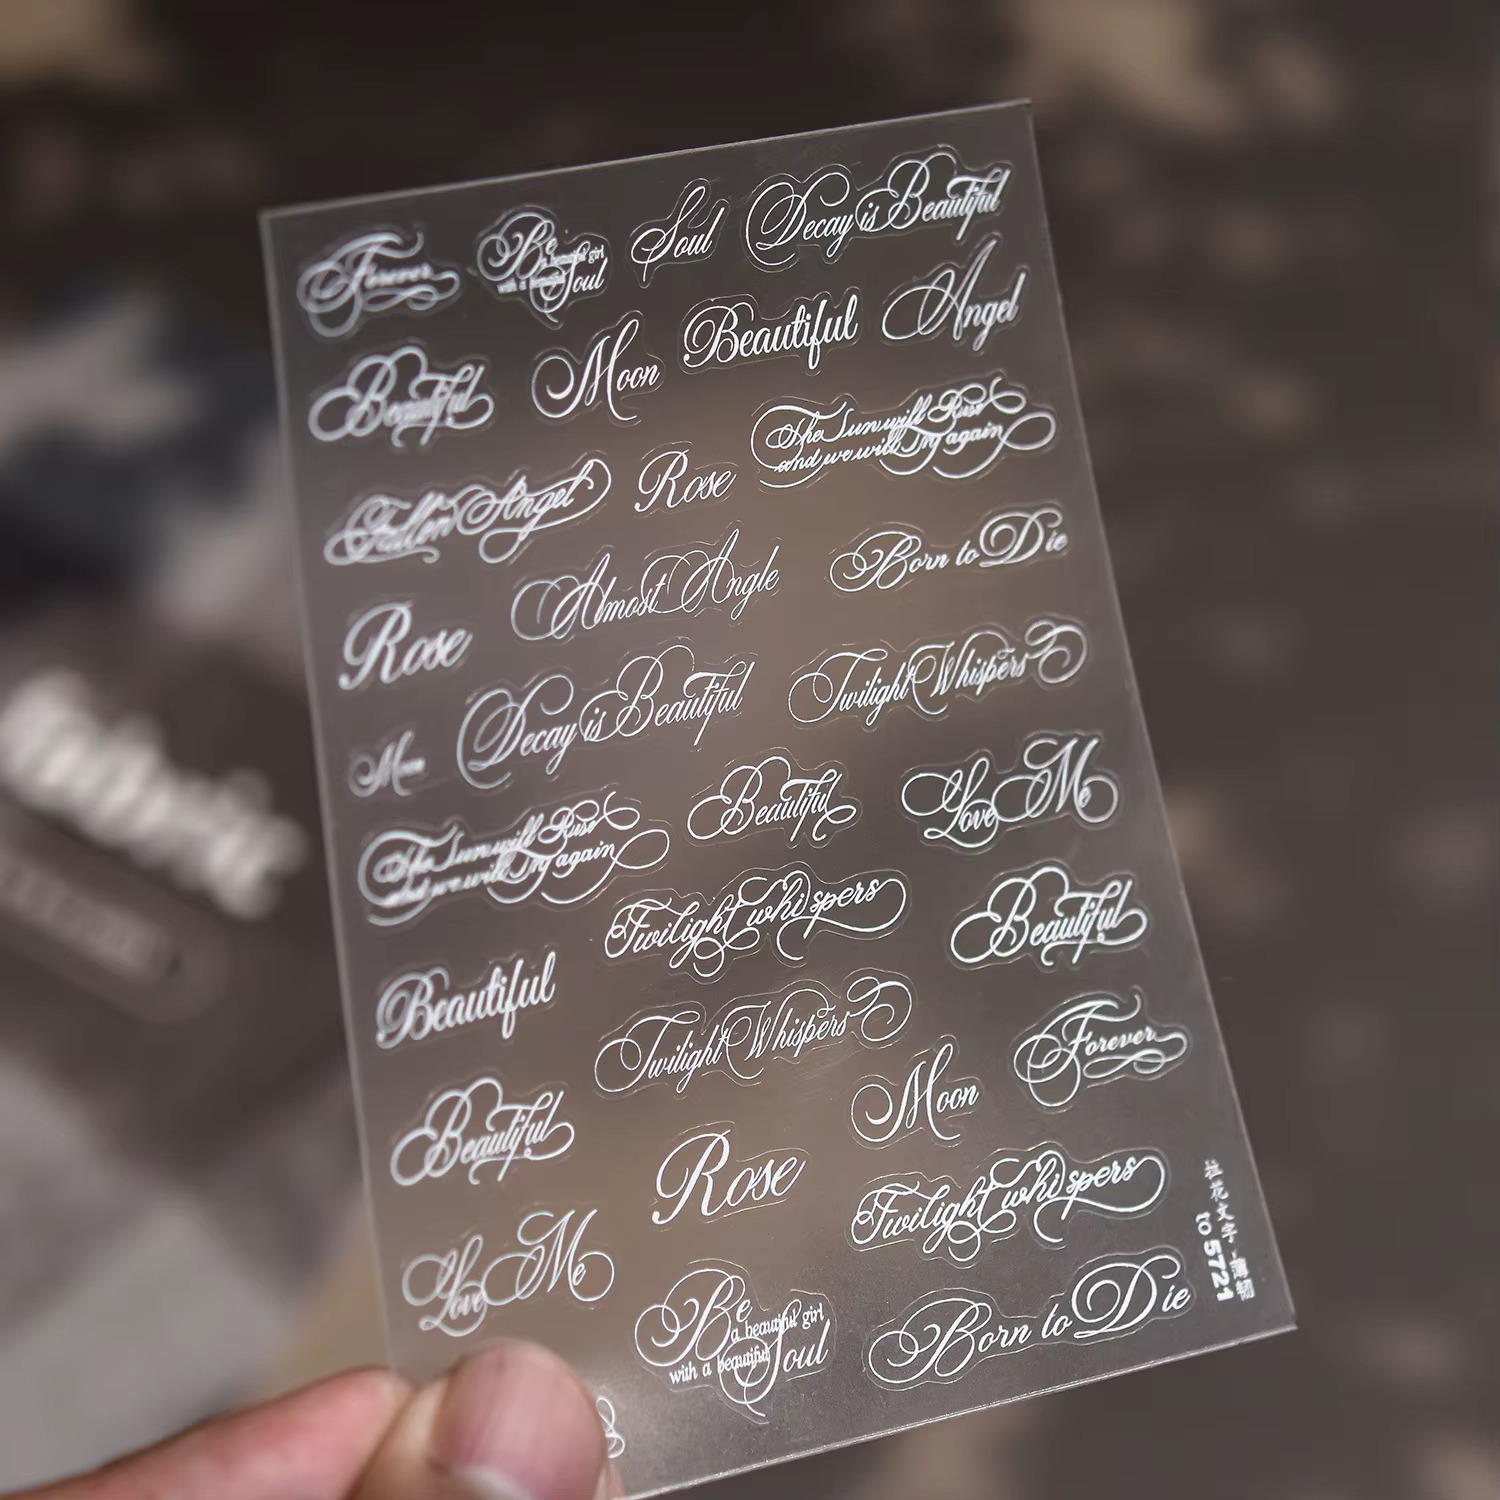 Forever
Be
a beautiful girl
with a beautiful
Soul
Soul
Decay is Beautiful
Beautiful
Moon
Beautiful
Angel
Fallen Angel
Rose
The Sun will Rise
and we will Try again
Rose
Almost Angle
Born to Die
Moon
Decay is Beautiful
Twilight Whispers
The Sun will Rise
and we will Try again
Beautiful
Love Me
Beautiful
Twilight whispers
Beautiful
Beautiful
Twilight Whispers
Moon
Forever
Love Me
Rose
Twilight whispers
Be
a beautiful girl
with a beautiful
Soul
Born to Die
to 5721